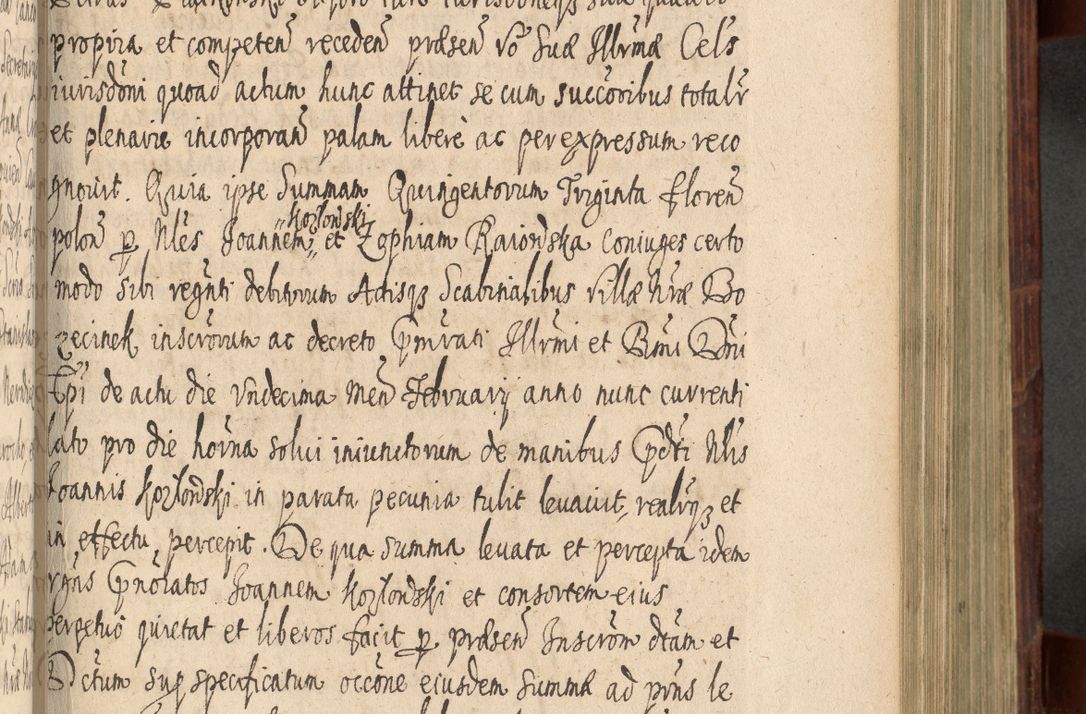 propria et competen̄ receden̄ præsen̄ v̄o Suæ Illr̄mæ Cels
iurisdōni quoad actum hunc attinet se cum succōribus totalr̄
et plenarie incorporan̄ palam liberè ac per expressum reco
gnovit. Quia ipse Summam Quingentorum Triginta floren̄
polon̄ p̱ Nl̄es Joannem „Kozłowski„ et Zophiam Raiowska coniuges certo
modo sibi regn̄ti debitorum Actisqꝫ Scabinalibus Villæ Nr̄æ Bo
zecinek inscr̄orum ac decreto p̄mr̄ati Illr̄mi et Rm̄i Dn̄i
Ep̄i de actu die Vndecima Men̄ Februarij anno nunc currenti
lato pro die hor̄na solui iniunctorum de manibus p̄dc̄ti Nl̄is
Joannis Kozłowski in parata pecunia tulit levavit, realr̄qꝫ et
in effectu percepit. De qua summa levata et percepta idem
rgn̄s p̄nōiatos Joannem Kozłowski et consortem eius
perpetuō quietat et liberos facit p̱ præsen̄ Inscr̄om dc̄tam et
Dc̄tum sup̱ specificatum occōne eiusdem Summæ ad pr̄ns le